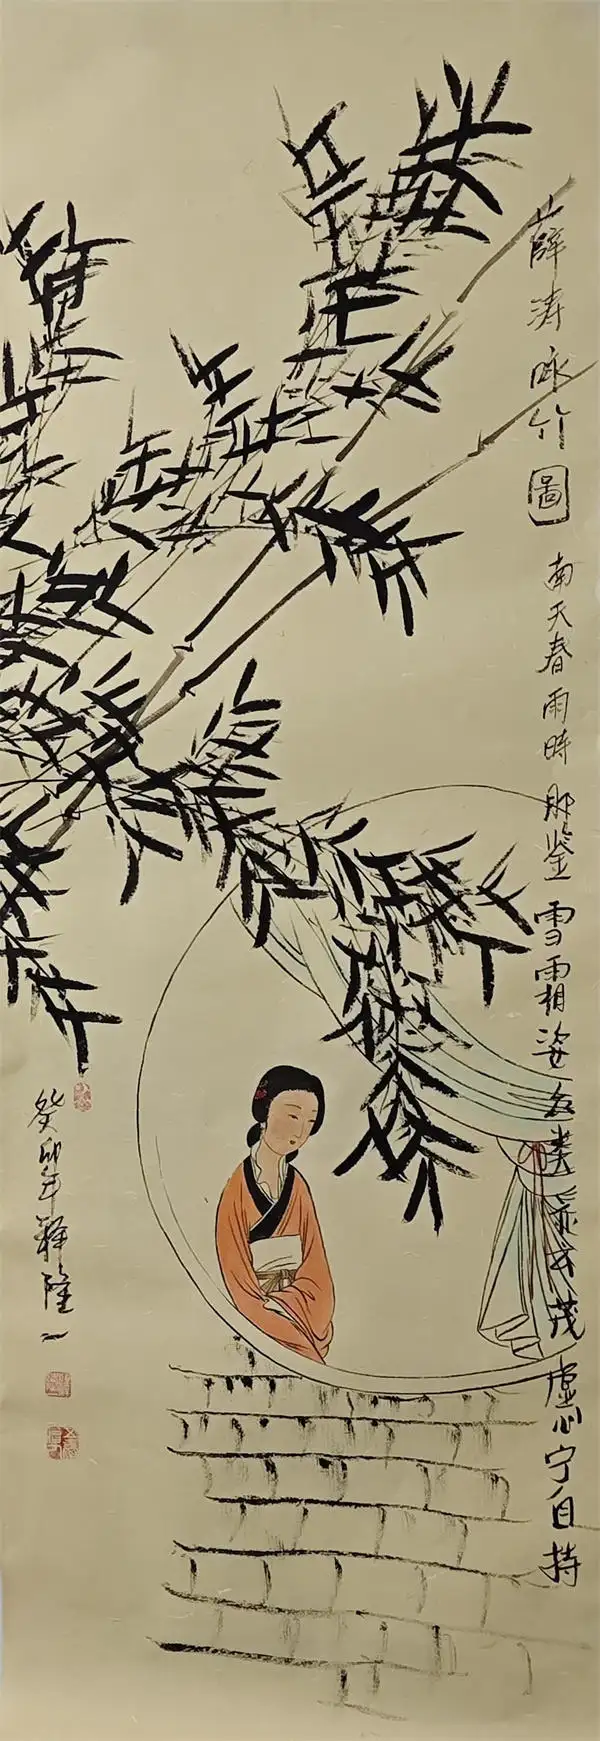 薛涛咏竹圖 南天春雨時那鉴雪霜姿众类亦云茂虚心宁自持
癸卯年释隆一